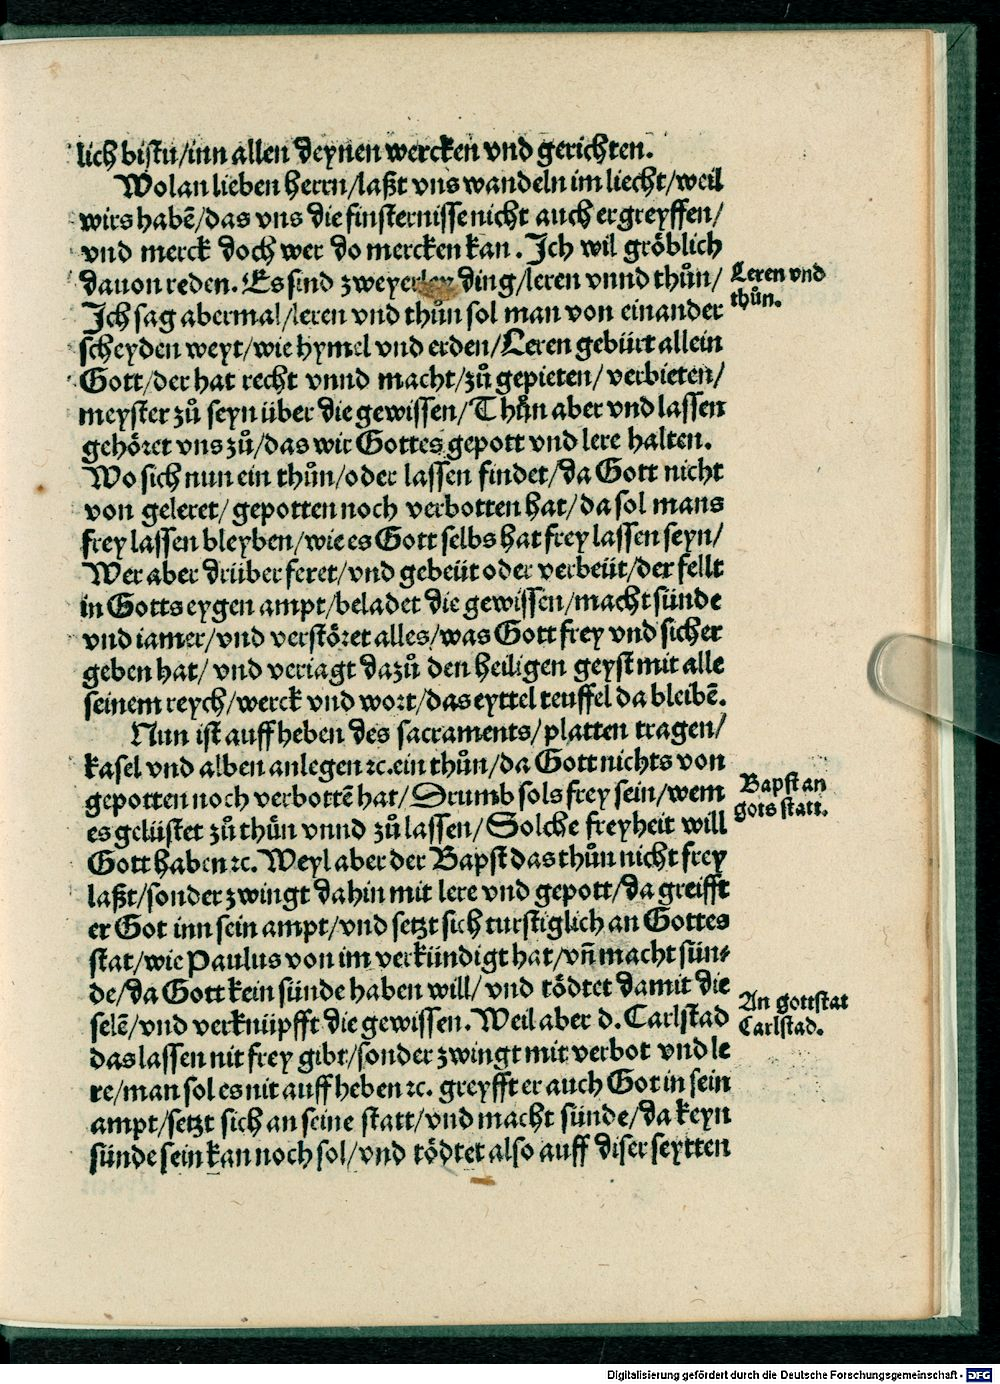 lich bistu/inn allen deynen wercken vnd gerichten.
Wolan lieben herrn/laßt vns wandeln im liecht/weil
wirs habẽ/das vns die finsternisse nicht auch ergreyffen/
vnd merck doch wer do mercken kan. Ich wil gröblich
dauon reden. Es sind zweyerley ding/leren vnnd thůn/
Leren vnd
thůn.
Ich sag abermal/leren vnd thůn sol man von einander
scheyden weyt/wie hymel vnd erden/Leren gebürt allein
Gott/der hat recht vnnd macht/zů gepieten/verbieten/
meyster zů seyn über die gewissen/Thůn aber vnd lassen
gehöret vns zů/das wir Gottes gepott vnd lere halten.
Wo sich nun ein thůn/oder lassen findet/da Gott nicht
von geleret/gepotten noch verbotten hat/da sol mans
frey lassen bleyben/wie es Gott selbs hat frey lassen seyn/
Wer aber drüber feret/vnd gebeüt oder verbeüt/der fellt
in Gotts eygen ampt/beladet die gewissen/macht sünde
vnd iamer/vnd verstöret alles/was Gott frey vnd sicher
geben hat/vnd veriagt dazů den heiligen geyst mit alle
seinem reych/werck vnd wort/das eyttel teuffel da bleibẽ.
Nun ist auffheben des sacraments/platten tragen/
kasel vnd alben anlegen ꝛc. ein thůn/da Gott nichts von
gepotten noch verbottẽ hat/Drumb sols frey sein/wem
Bapst an
gots statt.
es gelüstet zů thůn vnnd zů lassen/Solche freyheit will
Gott haben ꝛc. Weyl aber der Bapst das thůn nicht frey
laßt/sonder zwingt dahin mit lere vnd gepott/da greifft
er Got inn sein ampt/vnd setzt sich turstiglich an Gottes
stat/wie Paulus von im verkündigt hat/vñ macht sün⸗
de/da Gott kein sünde haben will/vnd tödtet damit die
selẽ/vnd verknüpfft die gewissen. Weil aber d. Carlstad
An gottstat
Carlstad.
das lassen nit frey gibt/sonder zwingt mit verbot vnd le
re/man sol es nit auffheben ꝛc. greyfft er auch Got in sein
ampt/setzt sich an seine statt/vnd macht sünde/da keyn
sünde sein kan noch sol/vnd tödtet also auff diser seytten
Digitalisierung gefördert durch die Deutsche Forschungsgemeinschaft - DFG